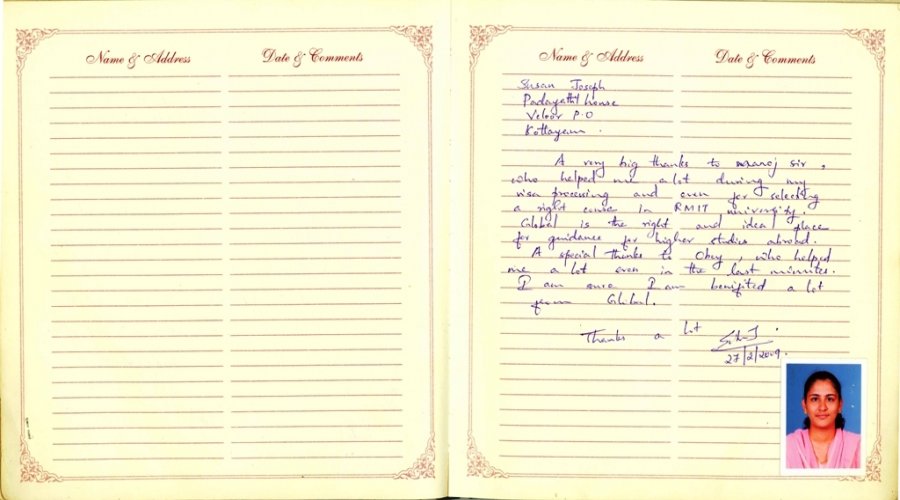 Name & Address
Date & Comments
Name & Address
Date & Comments
Susan Joseph
Padayathil house
Veloor P.O
Kottayam.
A very big thanks to manoj sir,
who helped me a lot during my
visa processing and even for selecting
a right course in RMIT university.
Global is the right and ideal place
for guidance for higher studies abroad.
A special thanks to , who helped
me a lot even in the last minutes.
I am sure I am benifited a lot
from Global.
Thanks a lot
27/2/2009.